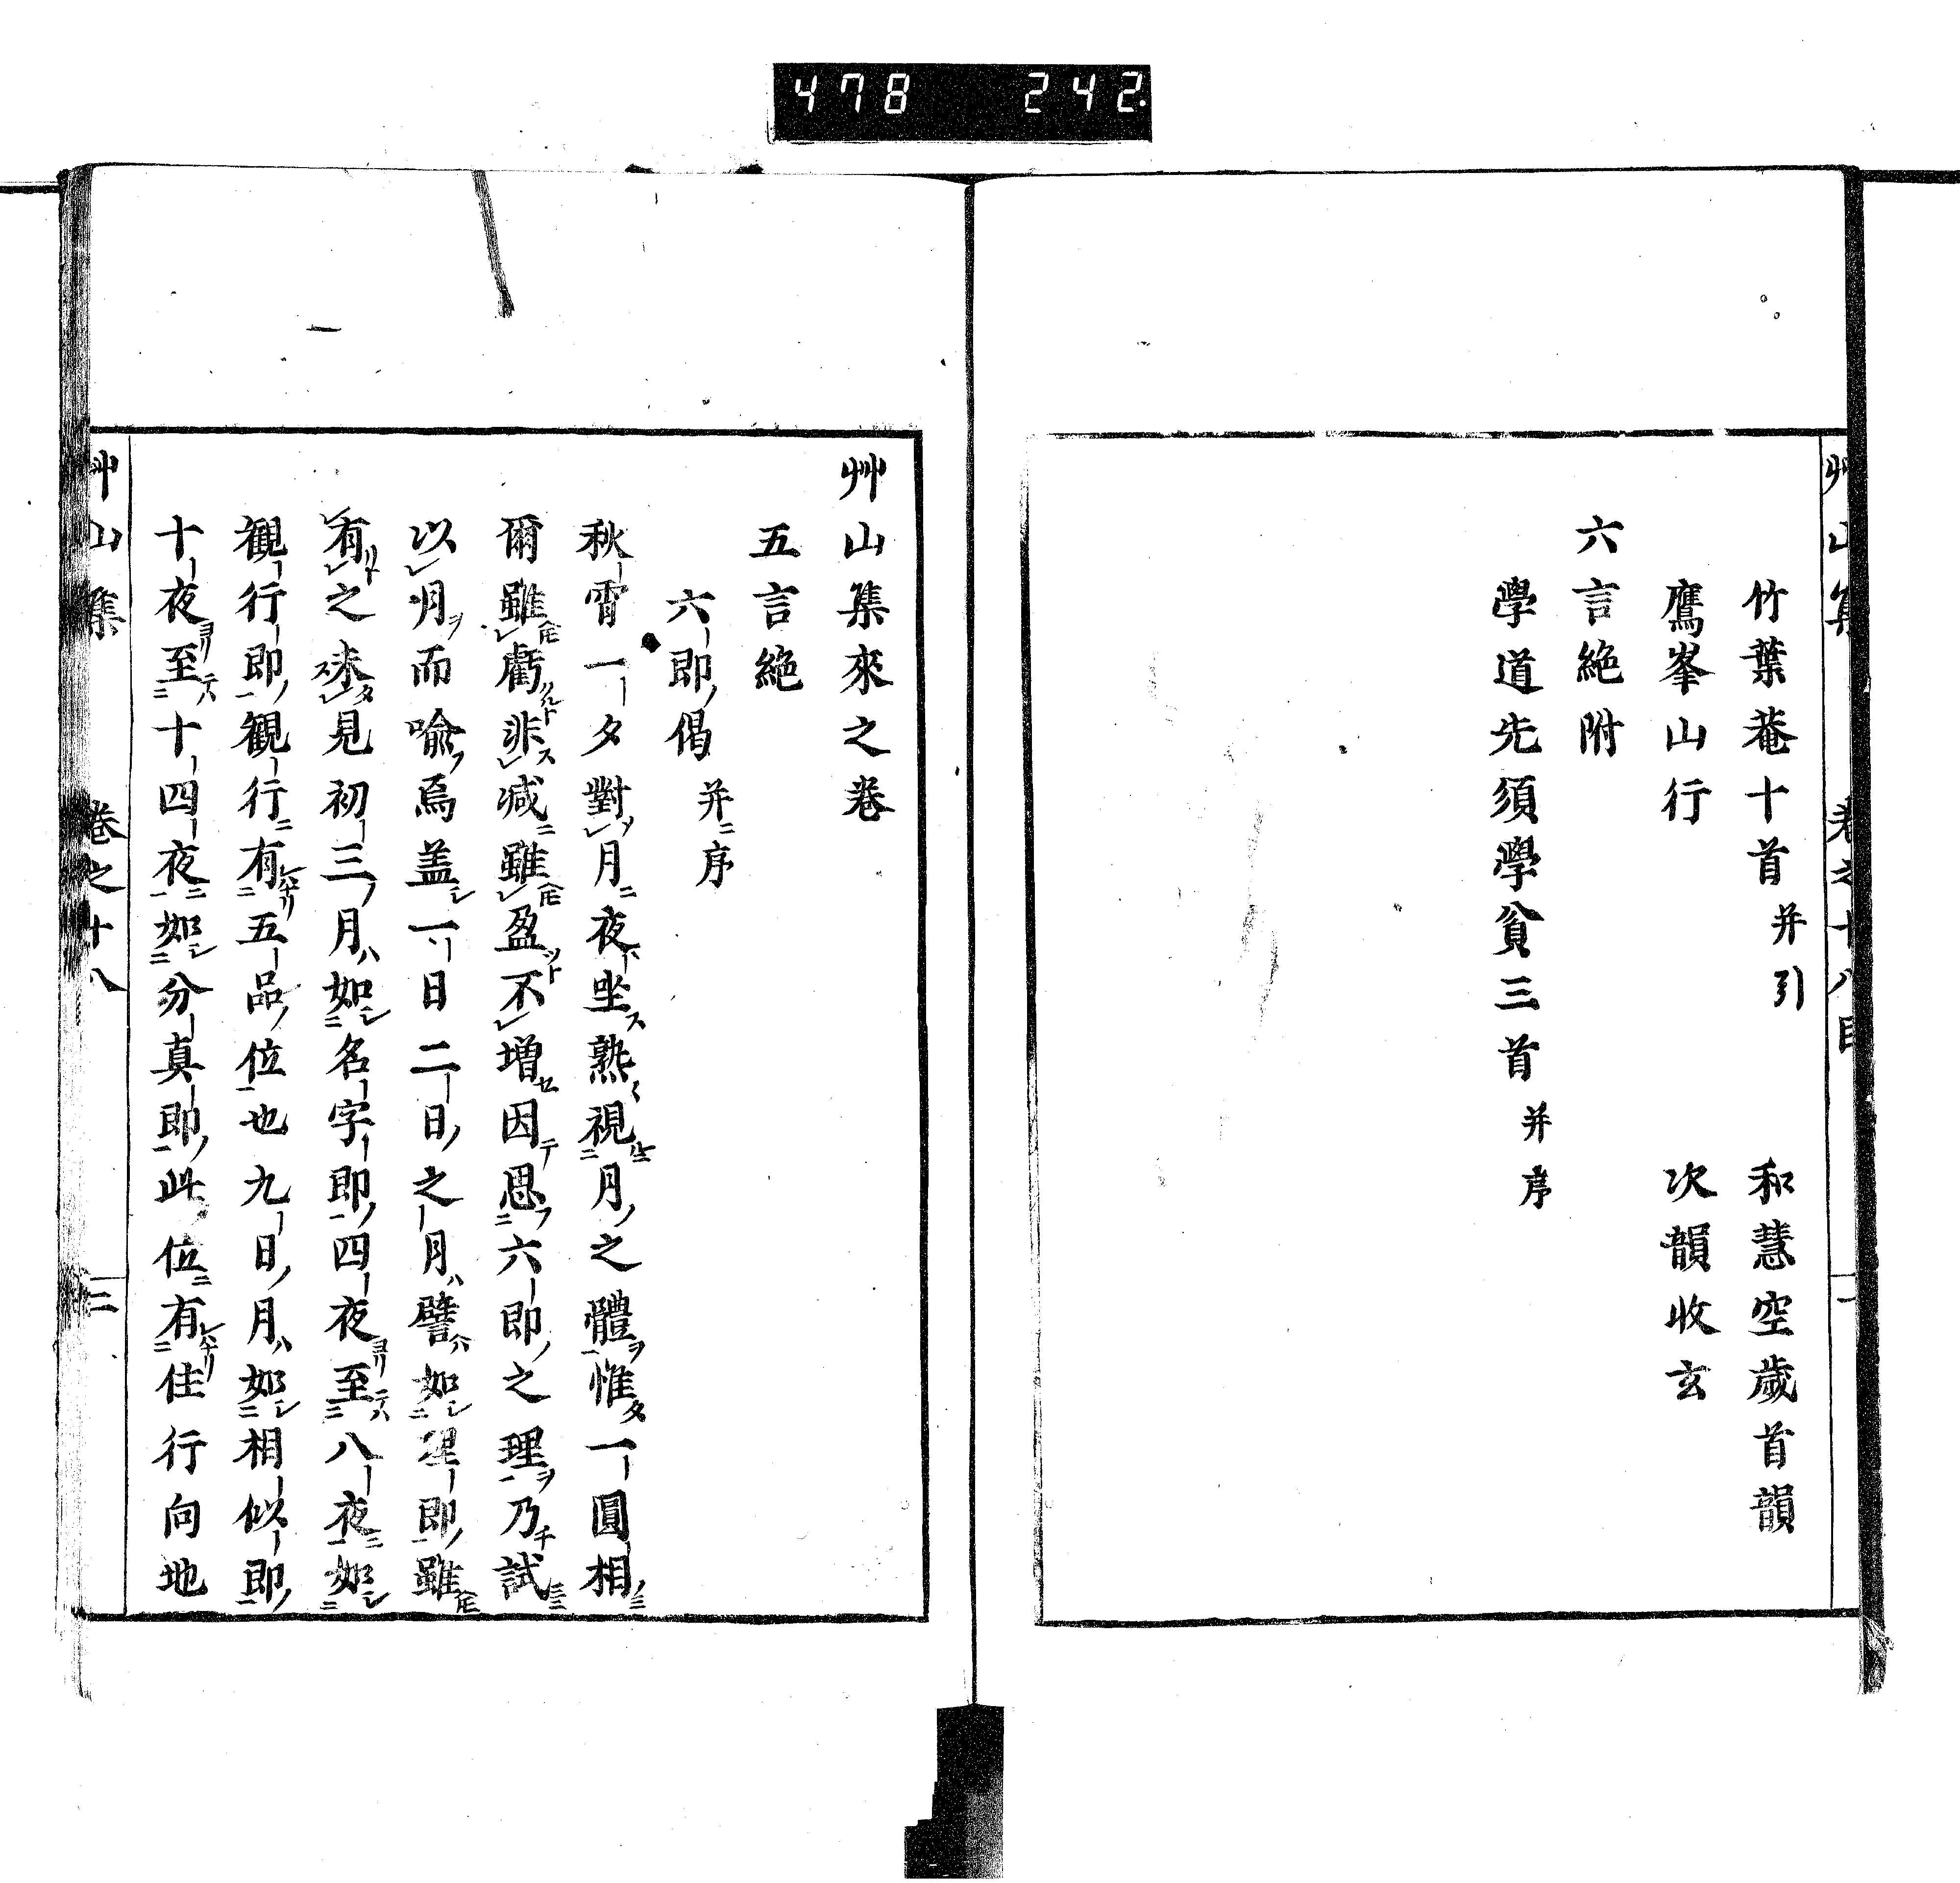 478 242.
艸山集 卷之十八目 一
竹葉菴十首 并引 和慧空歳首韻
鷹峯山行 次韻收玄
六言絶附
學道先須學貧三首 并序
艸山集來之卷
五言絶
六即偈 并序
秋霄一夕對月夜坐熟視月之體惟一圓相
爾雖虧非减雖盈不増因思六即之理乃試
以月而喩焉盖一日二日之月譬如理即雖
有之未見初三月如名字即四夜至八夜如
觀行即觀行有五品位也九日月如相似即
十夜至十四夜如分真即此位有住行向地
艸山集 卷之十八 三